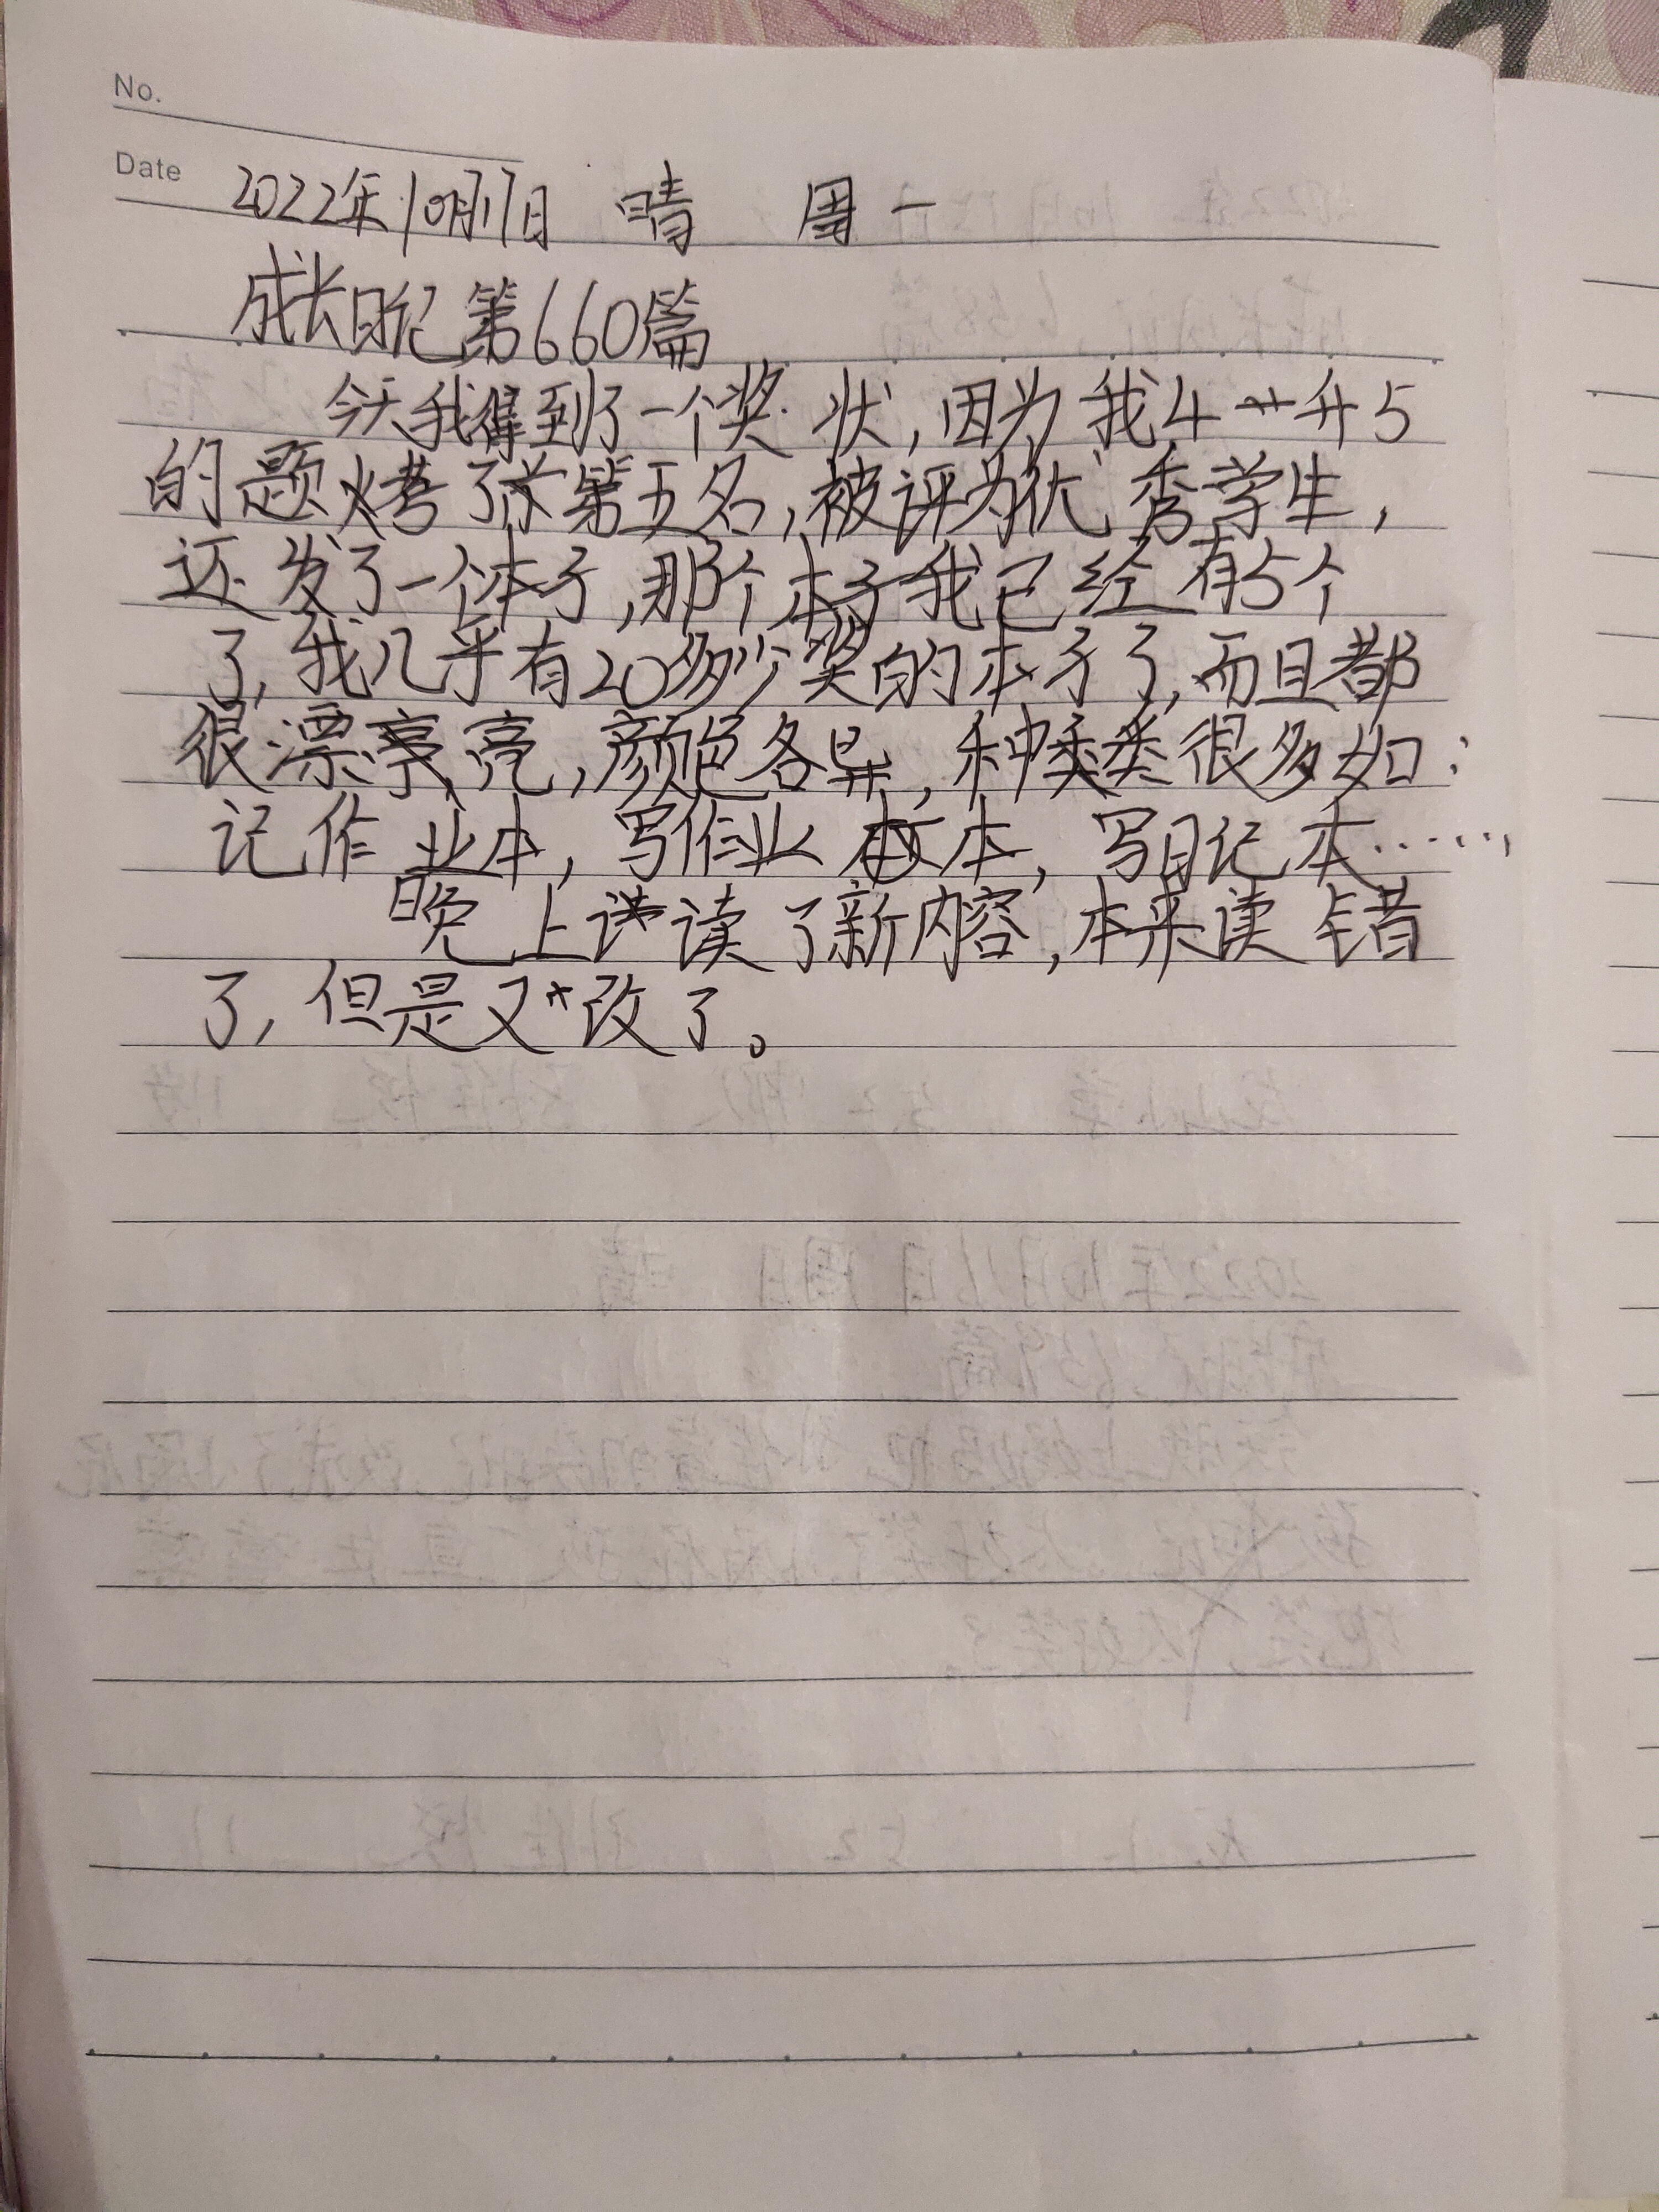 No.
Date 2022年10月17日 晴 周一
成长日记第660篇
今天我得到了一个奖状,因为我4升5
的题烤了第五名,被评为优秀学生,
还发了一个本子,那个本子我已经有5个
了,我几乎有20多少奖的本子了,而且都
很漂亮,颜色各异,种类很多如:
记作业本,写作业本,写日记本……,
晚上读了新内容,本来读错
了,但是又改了。